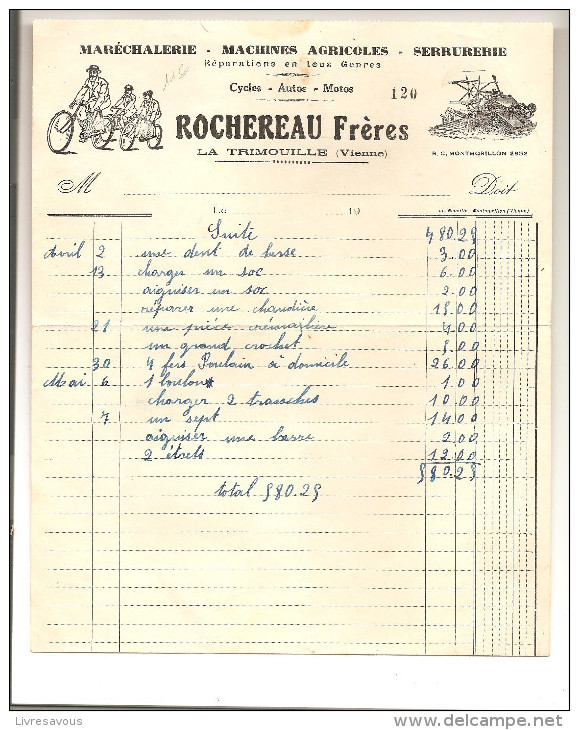 MARÉCHALERIE - MACHINES AGRICOLES - SERRURERIE
Réparations en tous Genres
Cycles - Autos - Motos
120
ROCHEREAU Frères
LA TRIMOUILLE (Vienne)
R. C. MONTMORILLON 2852
M Doit
Le 19
Suite 480.25
Avril 2 une dent de herse 3.00
13 charger un soc 6.00
aiguiser un soc 2.00
réparer une chaudière 15.00
21 une pièce crémaillère 4.00
un grand crochet 5.00
30 4 fers Poulain à domicile 26.00
Mai 6 1 boulon 1.00
charger 2 10.00
7 un sept 14.00
aiguiser une barre 2.00
2 12.00
580.25
total 580.25
Livresavous
www.delcampe.net